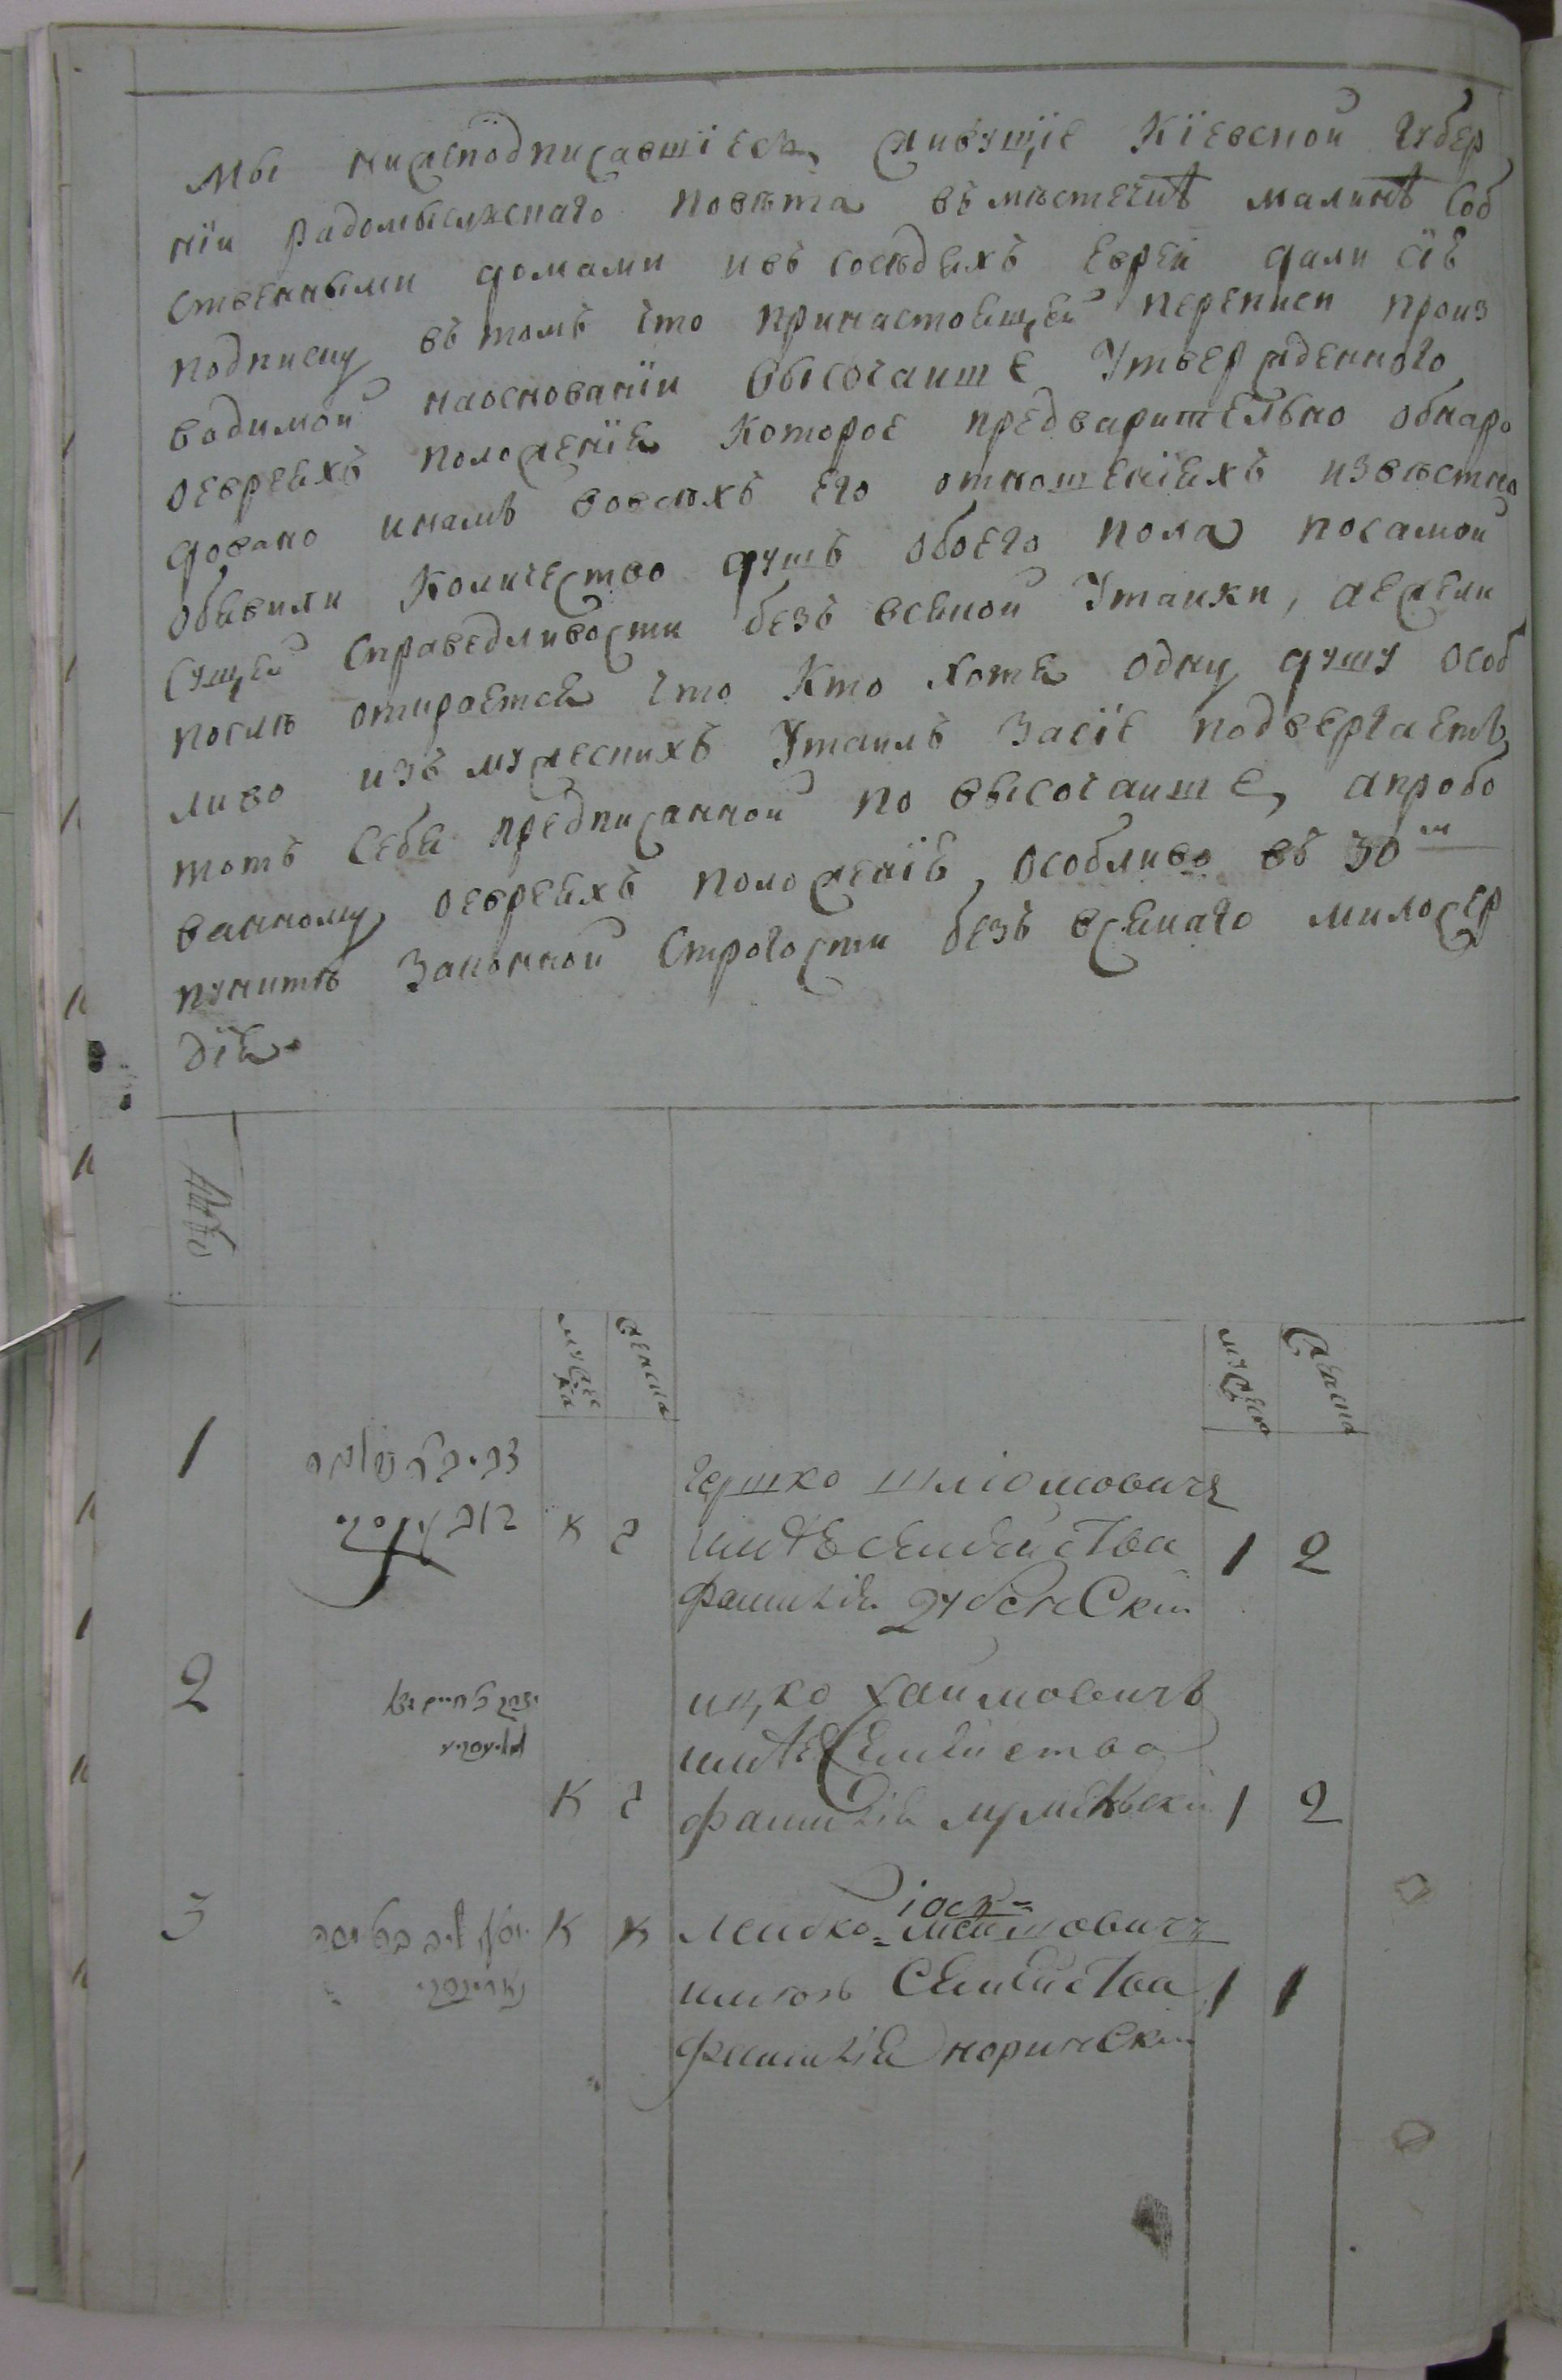 Мы нижеподписавшіеся живущіе Кіевской Губер
ніи Радомысльскаго повѣта въ мѣстечкѣ малинѣ Соб
ственными домами и въ сосѣдяхъ Евреи дали сіѣ
подписку въ томъ что при настоящей переписи произ
водимой на основаніи высочаише Утвержденного
о евреяхъ положенія которое предварительно обнаро
довано и намъ во всѣхъ его отношеніяхъ извѣстно
объявили количество душъ обоего пола по самой
сущей справедливости безъ всякой Утаики, а ежели
послѣ откроется что кто хотя одну душу особ
ливо изъ мужескихъ Утаилъ за сіе подвергаетъ
тотъ себя предписанной по высочаише апробо
ванному о евреяхъ положеніѣ, особливо въ 30 м
пунктѣ законной строгости безъ всякаго милосер
дія
мужеска женска мужеска женска
1 צבי בר שלמה
גершко шліомовичъ
א ב имѣе семейства 1 2
фамилія
2 יצחק
ицко хаимовичъ
имѣе Семейства
א ב фамилія 1 2
3 יוסף ליב בר משה א א
іось=
леибко= мошковичъ
имѣетъ Семейства 1 1
фамилія норинскіи